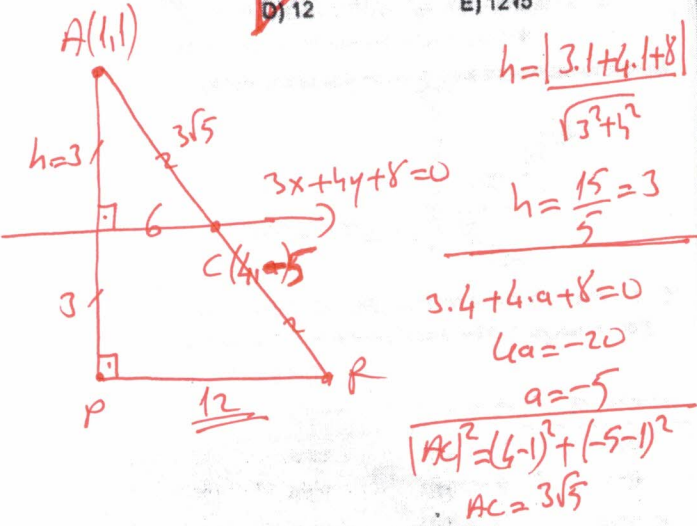 D) 12
E) 12√5
A(1,1)
h=3
3√5
3x+4y+8=0
6
C(4,-5)
3
P
12
R
h=|3.1+4.1+8|
√3²+4²
h=15/5=3
3.4+4.a+8=0
4a=-20
a=-5
|AC|²=(4-1)²+(-5-1)²
AC=3√5